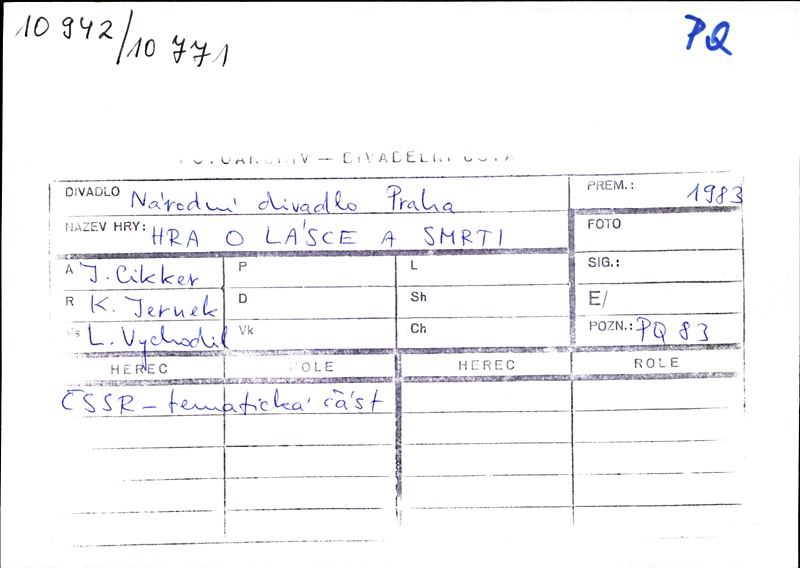 10 942/10 771
PQ
FOTOARCHIV — DIVADELNÍ ÚSTAV
DIVADLO Národní divadlo Praha
PREM.: 1983
NÁZEV HRY: HRA O LÁSCE A SMRTI
FOTO
A J. Cikker P L
SIG.:
R K. Jernek D Sh
E/
Vs L. Vychodil Vk Ch
POZN.: PQ 83
HEREC ROLE HEREC ROLE
ČSSR – tematická část